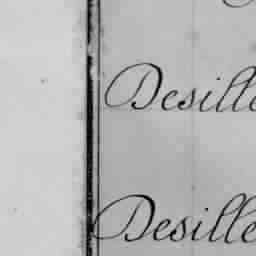 Desille
Desille